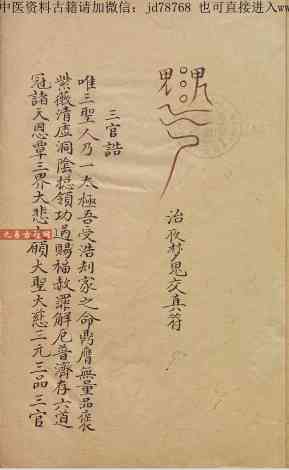 中医资料古籍请加微信: jd78768 也可直接进入ww
治夜梦鬼交真符
三官誥
唯三聖人乃一太極普受浩刼家之命鼎膺無量品褒
紫薇清虛洞陰總領功過賜福赦罪解厄普濟存亡道
冠諸天恩覃三界大悲大願大聖大慈三元三品三官